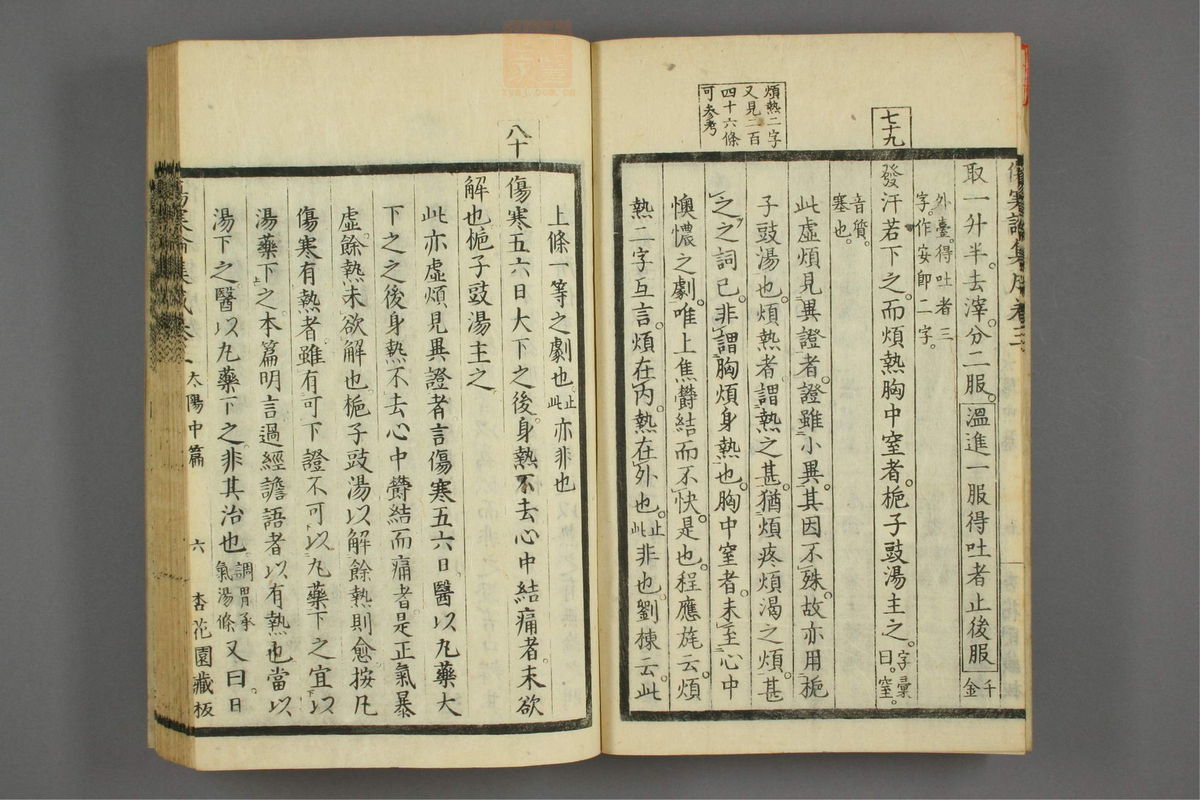 傷寒論集成卷三
取一升半。去滓。分二服。溫進一服得吐者止後服 千金
外臺。得吐者三字。作安卽二字。
七十九
發汗若下之。而煩熱胸中窒者。梔子豉湯主之。字彙曰。窒。
音質。塞也。
此虛煩見異證者。證雖小異。其因不殊。故亦用梔
子豉湯也。煩熱者。謂熱之甚。猶煩疼煩渴之煩。甚
煩熱二字
又見二百
四十六條
可參考
之之詞已。非謂胸煩身熱也。胸中窒者。未至心中
懊憹之劇。唯上焦欝結而不快是也。程應旄云。煩
熱二字互言。煩在內。熱在外也。止此非也。劉棟云。此
上條一等之劇也 止此亦非也
八十
傷寒五六日大下之後。身熱不去心中結痛者。未欲
解也梔子豉湯主之
此亦虛煩見異證者言傷寒五六日醫以丸藥大
下之之後身熱不去心中欝結而痛者是正氣暴
虛。餘熱未欲解也。梔子豉湯以解餘熱則愈按凡
傷寒有熱者雖有可下證不可以丸藥下之宜以
湯藥下之。本篇明言過經譫語者以有熱也當以
湯下之醫以丸藥下之。非其治也 調胃承氣湯條 又曰日
太陽中篇 六 杏花園藏板